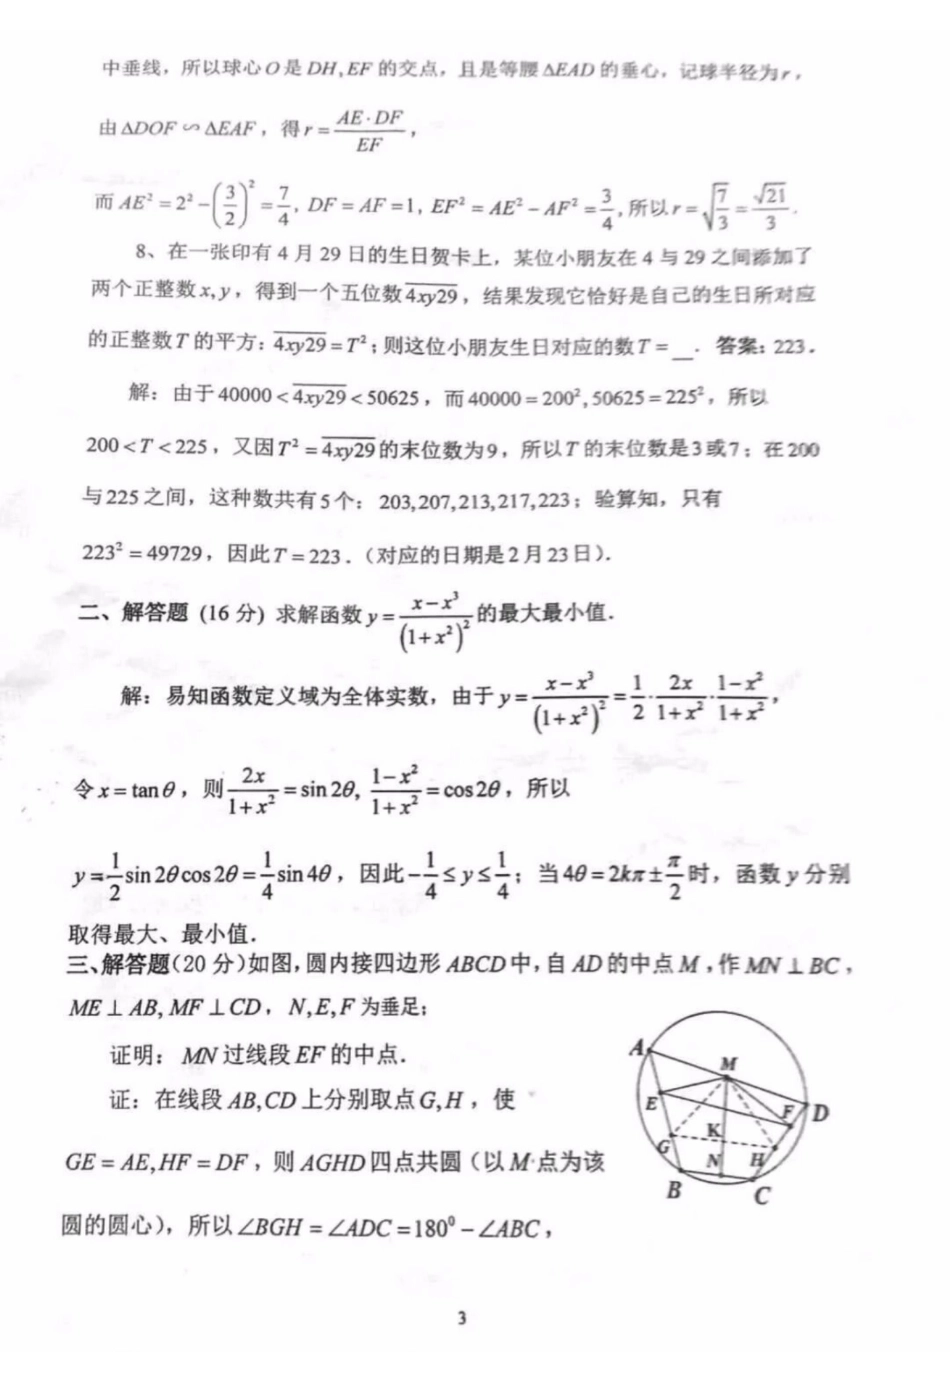 中垂线，所以球心O是DH,EF的交点，且是等腰△EAD的垂心，记球半径为r，
由△DOF∽△EAF，得r=AE·DF/EF，
而AE²=2²-(3/2)²=7/4, DF=AF=1, EF²=AE²-AF²=3/4,所以r=√(7/3)=√21/3.
8、在一张印有4月29日的生日贺卡上，某位小朋友在4与29之间添加了
两个正整数x,y，得到一个五位数4xy29，结果发现它恰好是自己的生日所对应
的正整数T的平方：4xy29=T²；则这位小朋友生日对应的数T=_．答案：223．
解：由于40000<4xy29<50625，而40000=200²,50625=225²，所以
200<T<225，又因T²=4xy29的末位数为9，所以T的末位数是3或7；在200
与225之间，这种数共有5个：203,207,213,217,223；验算知，只有
223²=49729，因此T=223．（对应的日期是2月23日）．
二、解答题 (16分) 求解函数y=(x-x³)/(1+x²)²的最大最小值．
解：易知函数定义域为全体实数，由于y=(x-x³)/(1+x²)²=1/2·2x/(1+x²)·(1-x²)/(1+x²)，
令x=tanθ，则2x/(1+x²)=sin2θ,(1-x²)/(1+x²)=cos2θ，所以
y=1/2sin2θcos2θ=1/4sin4θ，因此-1/4≤y≤1/4；当4θ=2kπ±π/2时，函数y分别
取得最大、最小值．
三、解答题(20分)如图，圆内接四边形ABCD中，自AD的中点M，作MN⊥BC，
ME⊥AB,MF⊥CD，N,E,F为垂足；
证明：MN过线段EF的中点．
证：在线段AB,CD上分别取点G,H，使
GE=AE,HF=DF，则AGHD四点共圆（以M点为该
圆的圆心），所以∠BGH=∠ADC=180⁰-∠ABC，
A
M
E
F
D
K
G
N
H
B
C
3